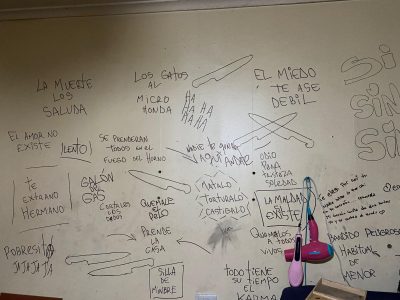 LA MUERTE
LOS
SALUDA
LOS GATOS
AL
MICRO
HONDA
HA
HA HA
HA HA
HAHA
EL MIEDO
TE ASE
DEBIL
SI
SIN
SIN
EL AMOR NO
EXISTE
LENTO
SE PRENDERAN
TODOS EN EL
FUEGO DEL HORNO
NADIE TE
AQUI ANDRE
ODIO
RABIA
TRISTEZA
SOLEDAD
TE
EXTRAÑO
HERMANO
GALON
DE
GAS
CORTALES
LOS
DEDOS
QUEMALE
DICIO
MATALO
TORTURALO
CASTIGALO
LA MALDAD
EXISTE
QUEMALOS
A TODOS
VIVOS
POBRESITA
JAJAJAJA
PRENDE
LA
CASA
SILLA
DE
MIMBRE
TODO TIENE
SU TIEMPO
EL
KARMA
PARTIDO PELIGROSO
HABITUAL
DE
MENOR